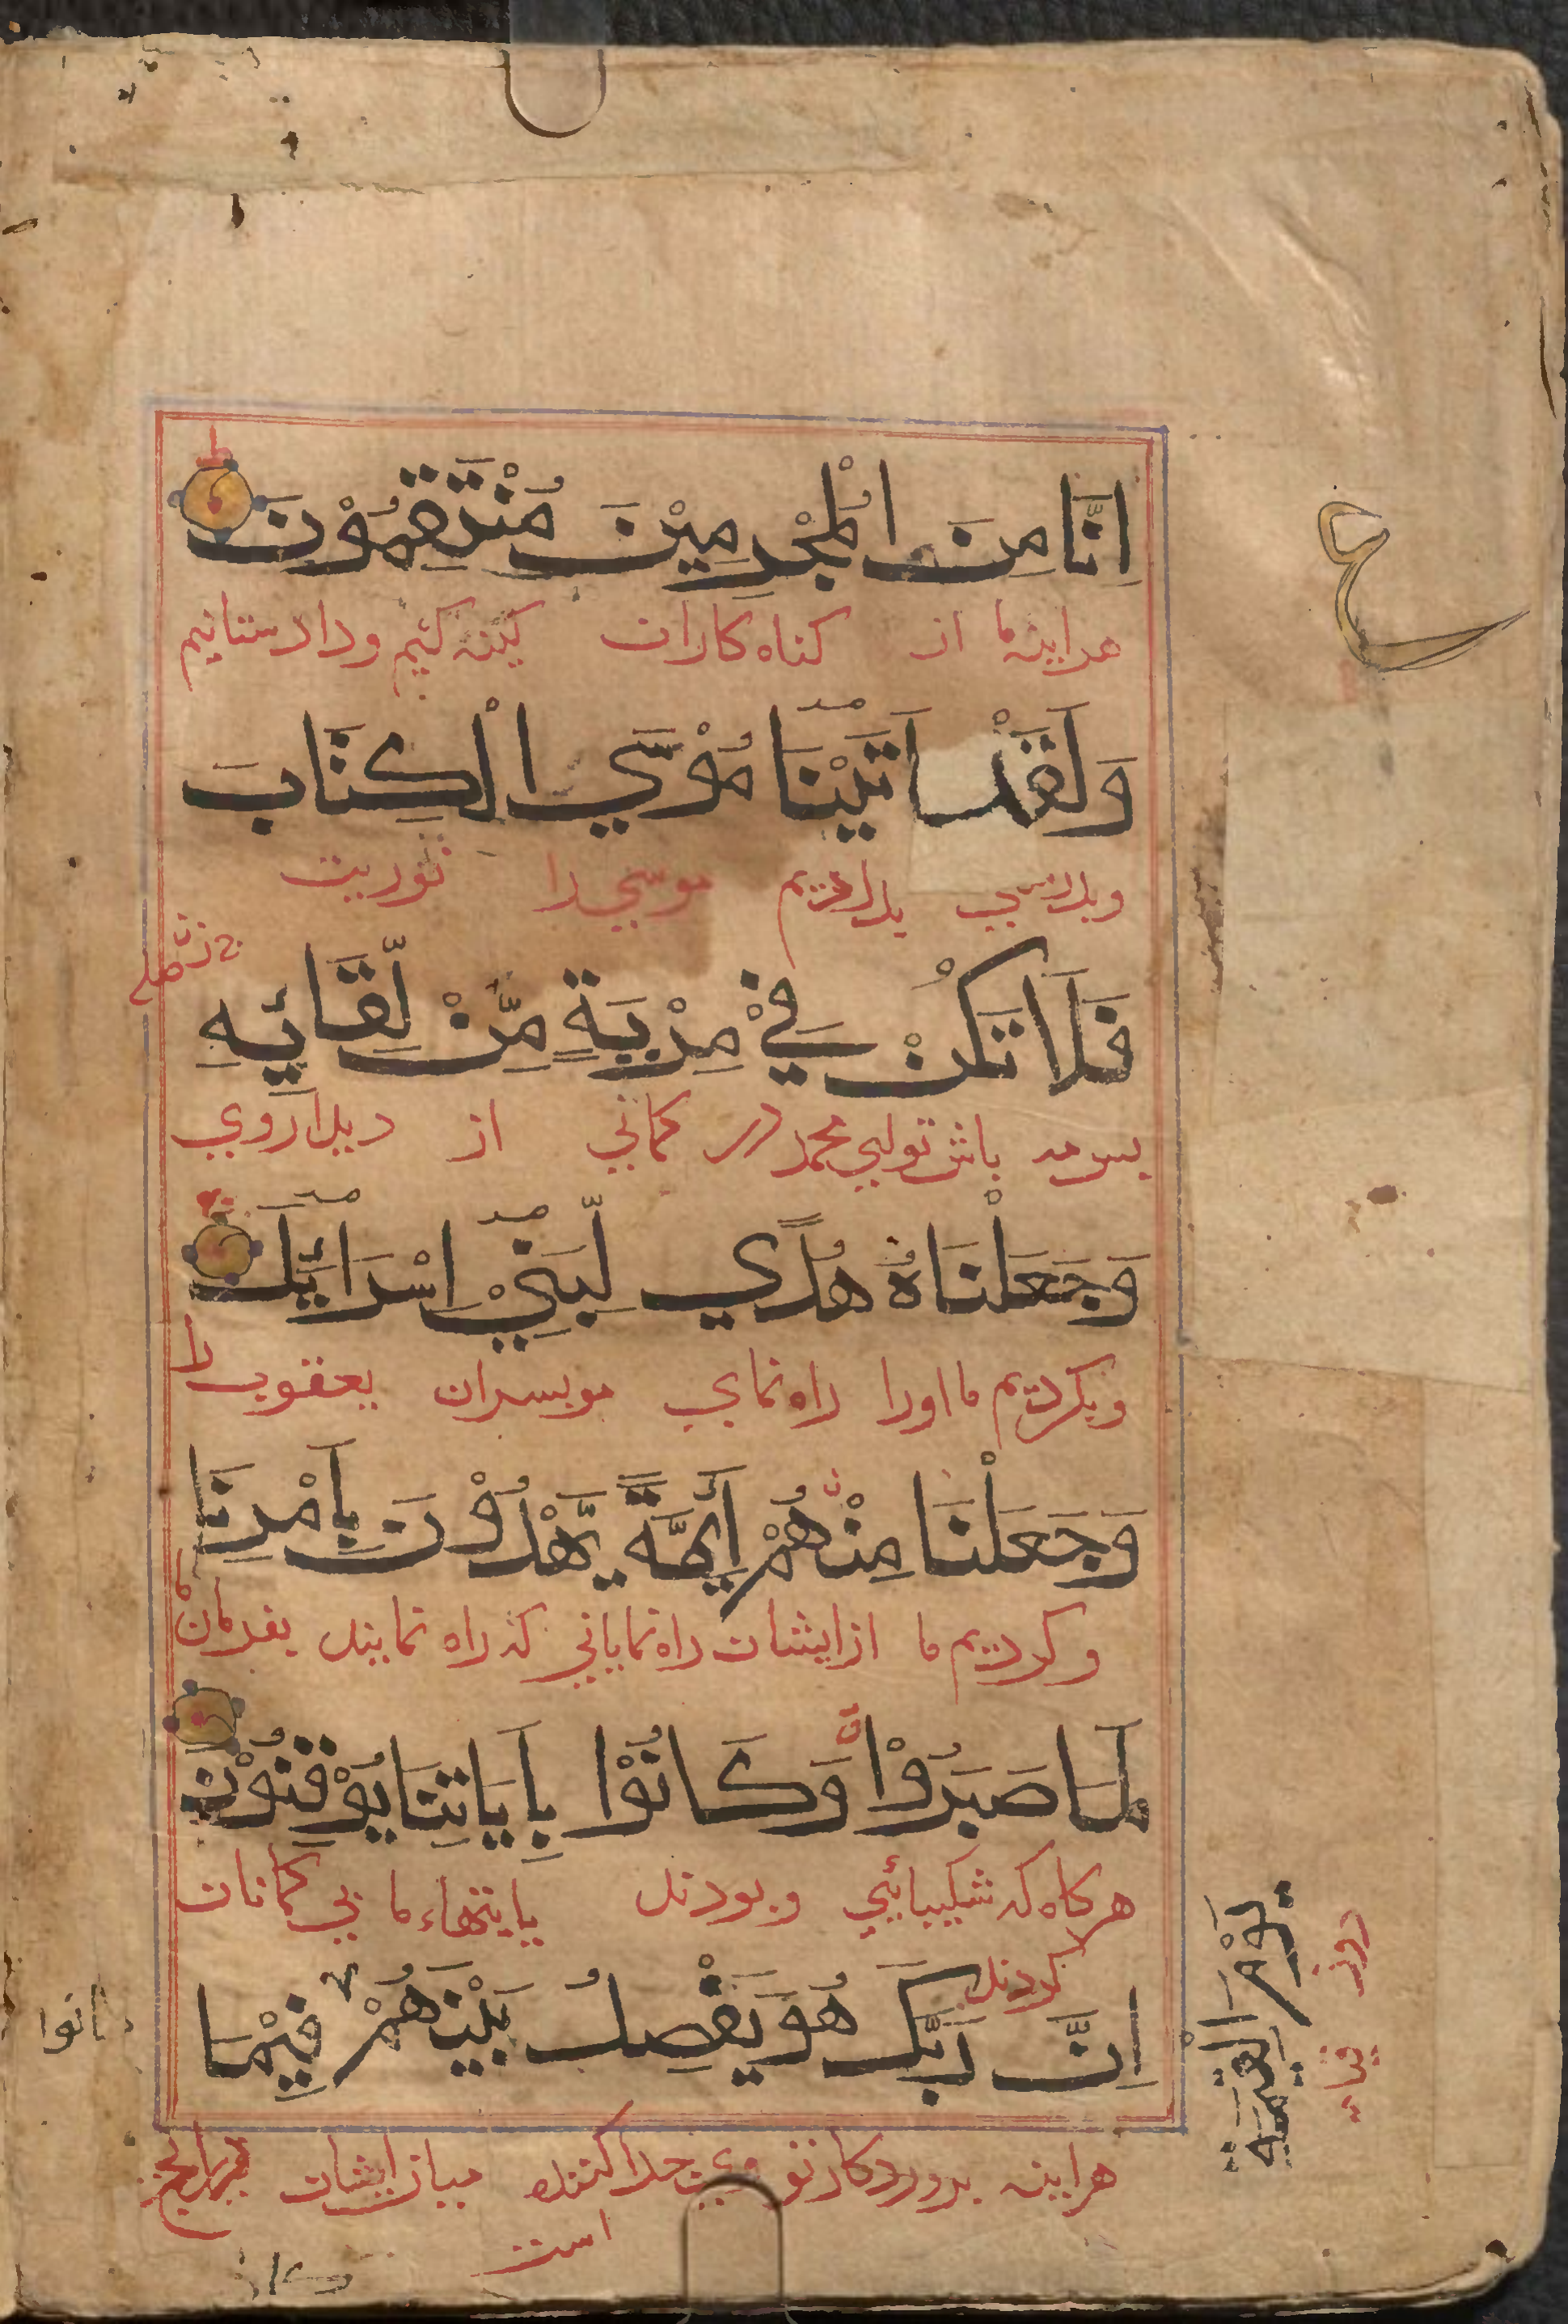 اِنَّا مِنَ الْمُجْرِمِيْنَ مُنْتَقِمُوْنَ
هراینه ما از کناه کاران کینه کشیم و داد ستانیم
وَلَقَدْ اٰتَيْنَا مُوْسَي الْكِتَابَ
وبدرستي بدادیم موسي را توریت
فَلَا تَكُنْ فِيْ مِرْيَةٍ مِّنْ لِّقَائِهِ
باش تو اي محمد در کماني از دیدار وي
وَجَعَلْنَاهُ هُدًي لِّبَنِيْ اِسْرَائِيْلَ
وبکردیم ما او را راه نماي مر بسران یعقوب را
وَجَعَلْنَا مِنْهُمْ أَئِمَّةً يَّهْدُوْنَ بِاَمْرِنَا
وکردیم ما از ایشان راه نمایاني که راه نمایند بفرمان ما
لَمَّا صَبَرُوْا وَكَانُوْا بِاٰيَاتِنَا يُوْقِنُوْنَ
هرکاه که شکیبائي وبودند بایتهاء ما بي کمانان
کردند
اِنَّ رَبَّكَ هُوَ يَفْصِلُ بَيْنَهُمْ فِيْمَا
هراینه بروردکار تو وي جدا کننده میان ایشان
است
يَوْمَ الْقِيٰمَةِ
روز
كانوا